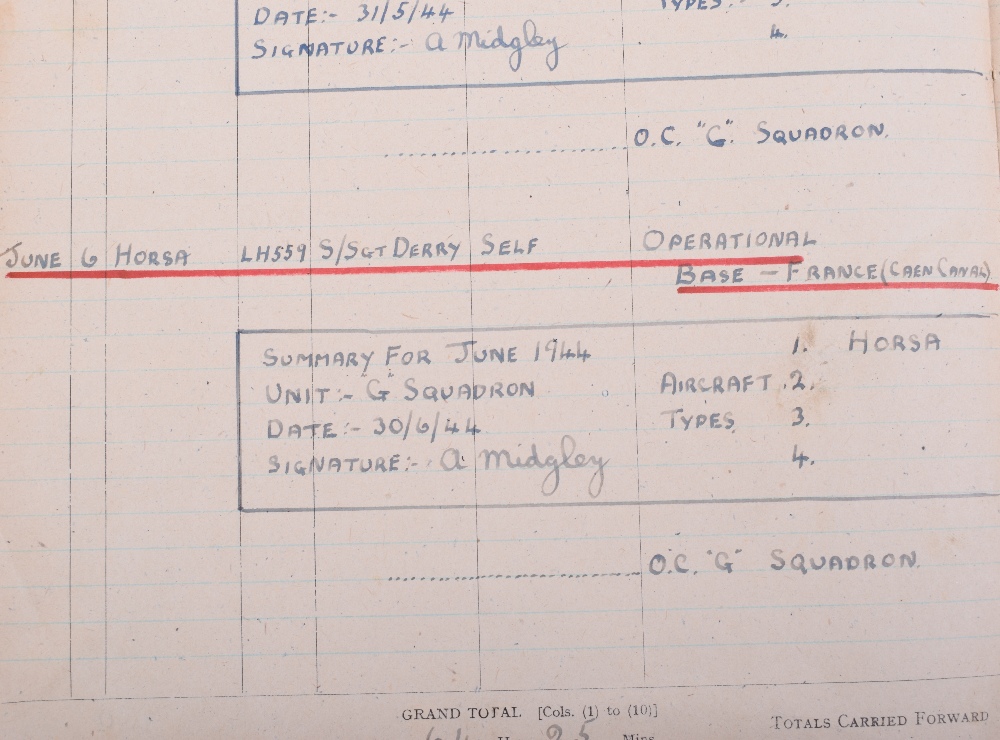 DATE:- 31/5/44 TYPES. 3.
SIGNATURE:- A Midgley 4.
O.C. "G". SQUADRON.
JUNE 6 HORSA LH559 S/SGT DERRY SELF OPERATIONAL
BASE – FRANCE (CAEN CANAL)
SUMMARY FOR JUNE 1944 1. HORSA
UNIT:- "G" SQUADRON AIRCRAFT 2.
DATE:- 30/6/44 TYPES 3.
SIGNATURE:- A Midgley 4.
O.C. "G" SQUADRON.
GRAND TOTAL [Cols. (1) to (10)] TOTALS CARRIED FORWARD